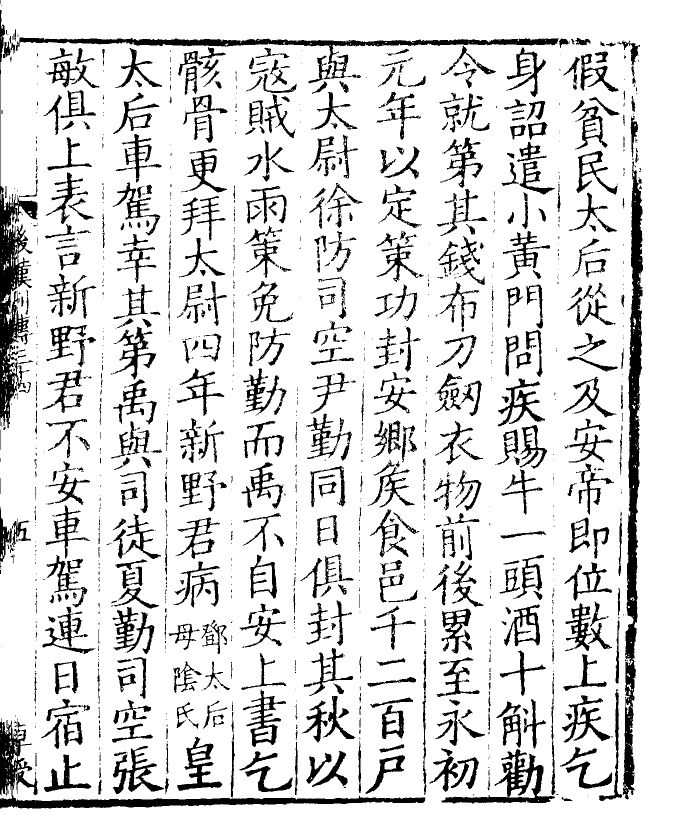 假貧民太后從之及安帝即位數上疾乞
身詔遣小黃門問疾賜牛一頭酒十斛勸
令就第其錢布刀劒衣物前後累至永初
元年以定策功封安鄉矦食邑千二百戶
與太尉徐防司空尹勤同日俱封其秋以
寇賊水雨策免防勤而禹不自安上書乞
骸骨更拜太尉四年新野君病鄧太后母陰氏皇
太后車駕幸其第禹與司徒夏勤司空張
敏俱上表言新野君不安車駕連日宿止
後漢列傳三十四
五